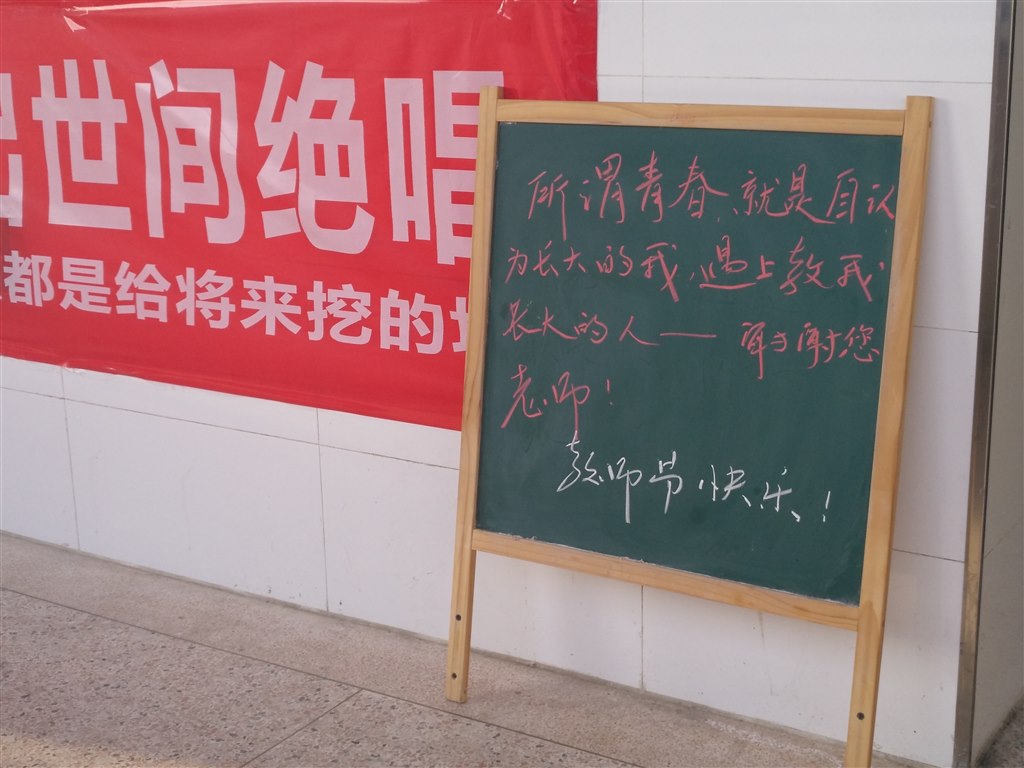 世间绝唱
都是给将来挖的
所谓青春,就是自认
为长大的我,遇上教我
长大的人——
谢您
老师!
教师节快乐!